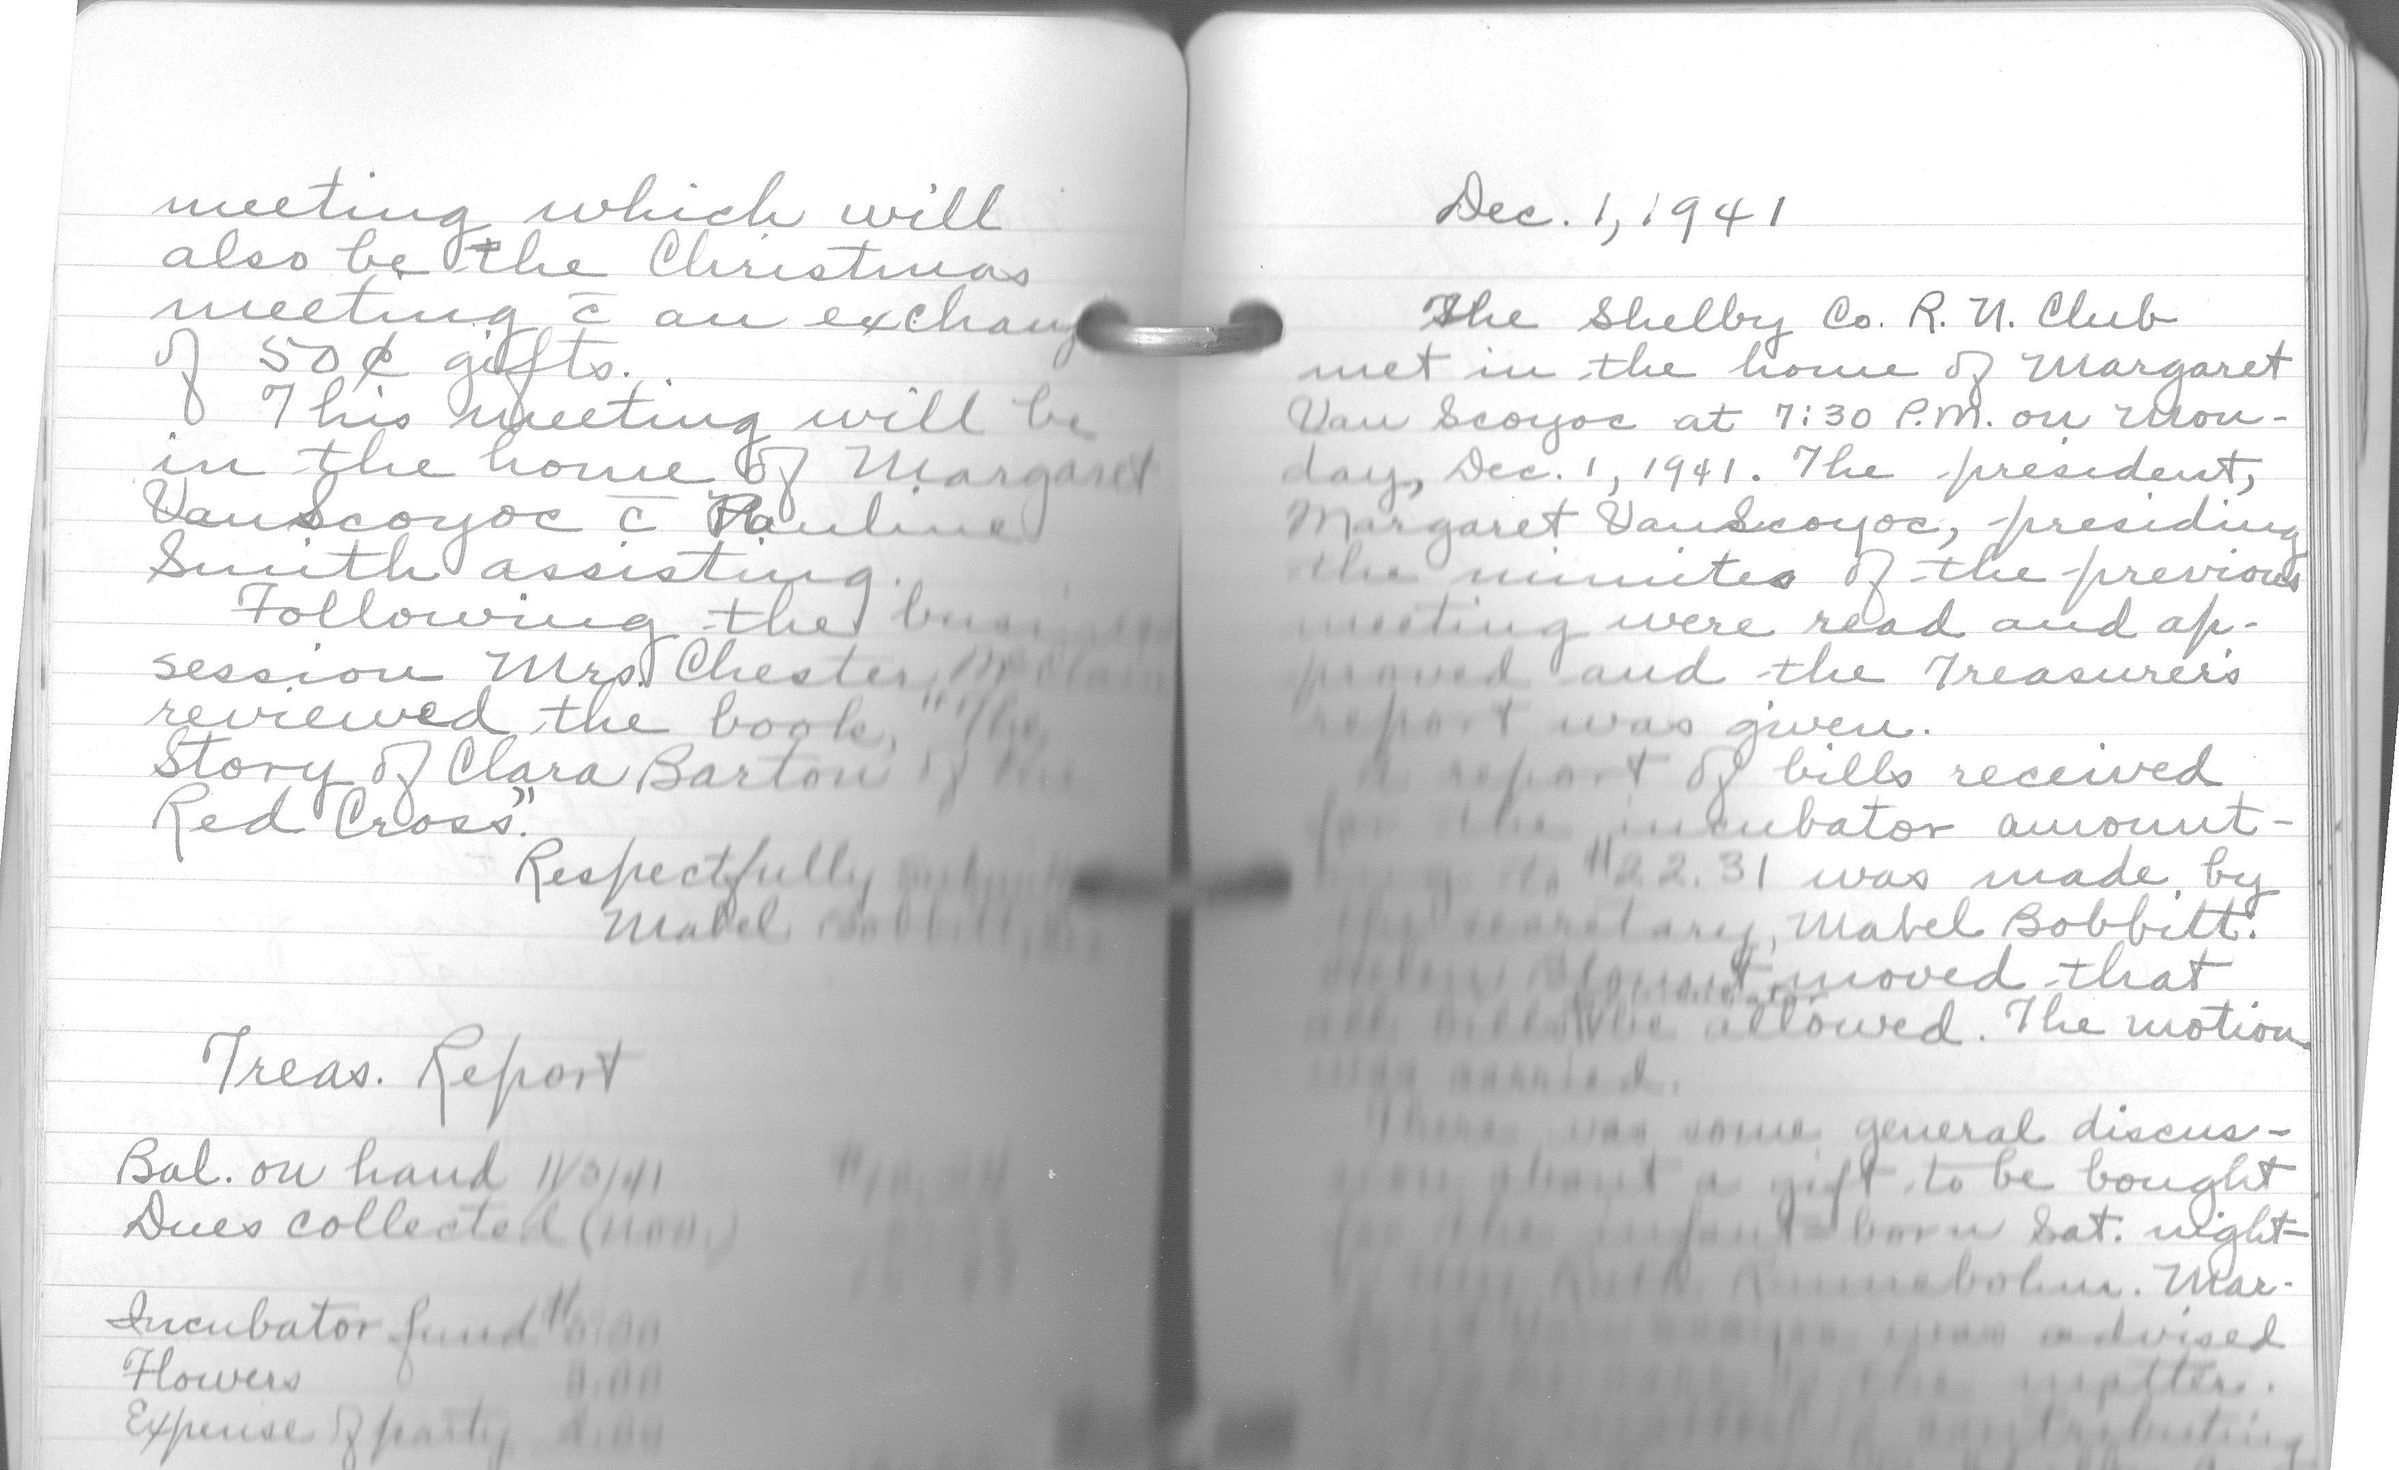 meeting which will
also be the Christmas
meeting c̄ an exchang
of 50¢ gifts.
This meeting will be
in the home of Margaret
VanScoyoc c̄ Pauline
Smith assisting.
Following the business
session Mrs. Chester McClain
reviewed the book, "The
Story of Clara Barton of the
Red Cross."
Respectfully
Mabel Bobbitt,
Treas. Report
Bal. on hand 11/3/41
Dues collected (Nov.)
Incubator fund
Flowers
Expense of party
Dec. 1, 1941
The Shelby Co. R. N. Club
met in the home of Margaret
Van Scoyoc at 7:30 P.M. on Mon-
day, Dec. 1, 1941. The president,
Margaret VanScoyoc, presiding
the minutes of the previous
meeting were read and ap-
proved and the Treasurer's
report was given.
A report of bills received
for the incubator amount-
ing to $22.31 was made by
the secretary, Mabel Bobbitt.
moved that
all bills be allowed. The motion
was carried.
There was some general discus-
sion about a gift to be bought
for the infant born Sat. night
Ruth Rannebohm. Mar-
was advised
the matter.
contributing